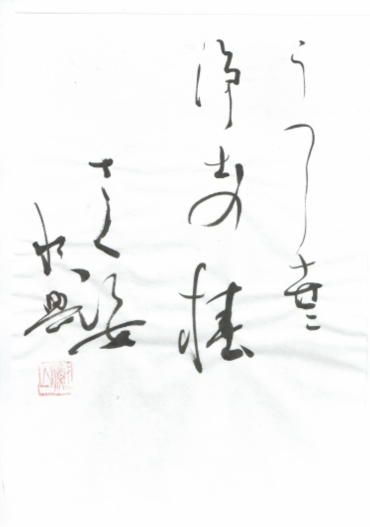 うつし世に
浄土の椿
さく姿